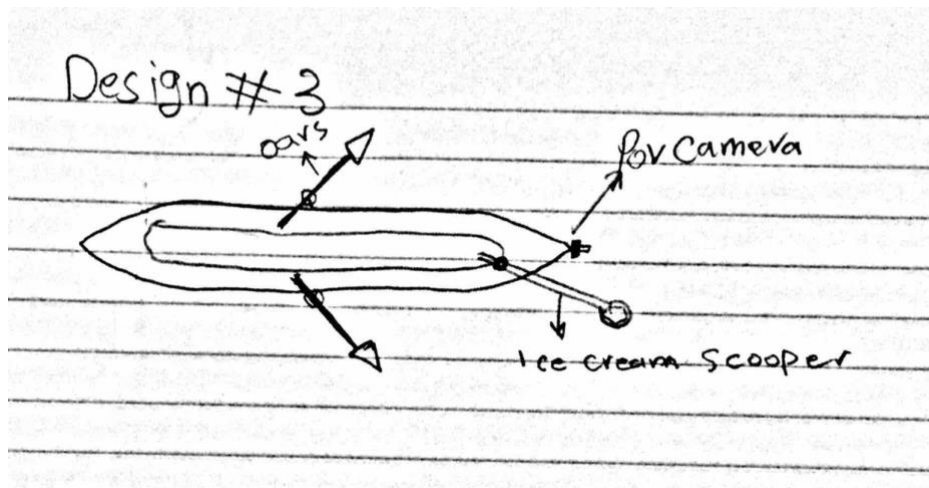 Design # 3
oars
Pov Camera
Ice cream Scooper